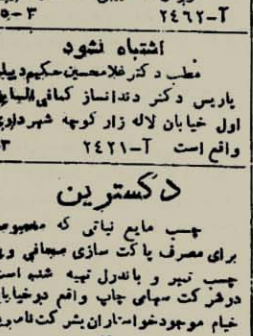 آ-۲۴۶۲ ۳-۵
اشتباه نشود
مطب دکتر غلامحسین حکیم
پاریس دکتر دندانساز کمافی‌السابق
اول خیابان لاله زار کوچه شهرداری
واقع است آ-۲۴۲۱ ۳
دکسترین
چسب مایع نباتی که مخصوص
برای مصرف پاکت سازی صحافی و
چسب تمبر و باندرل تهیه شده است
در شرکت سهامی چاپ واقع در خیابان
خیام موجود خواستاران بشرکت نامبرده